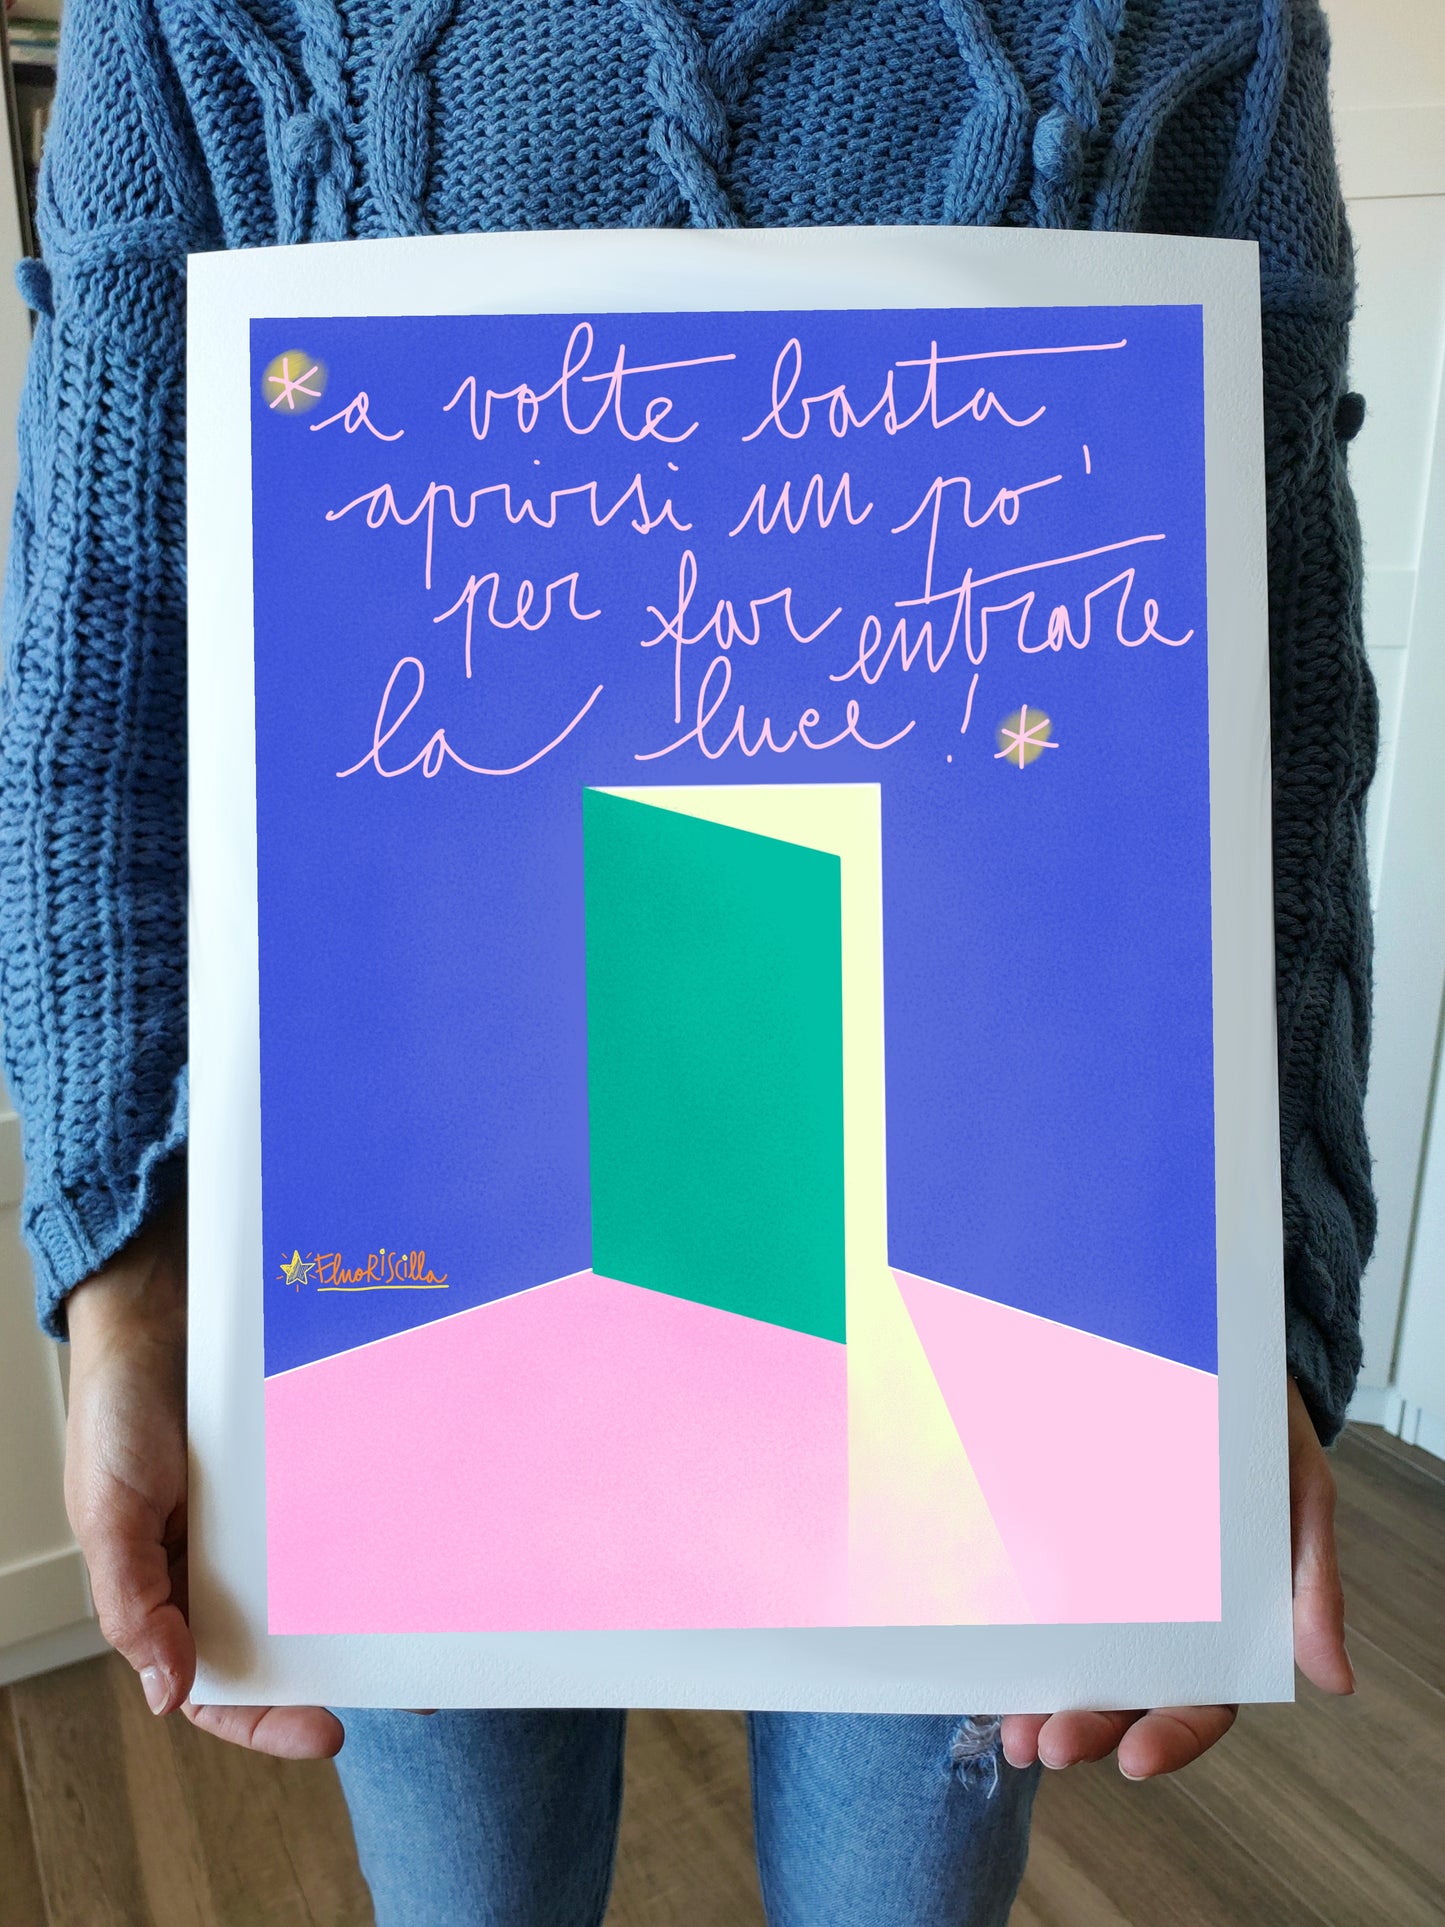 *a volte basta
aprirsi un po'
per far entrare
la luce!*
FluoRiScilla